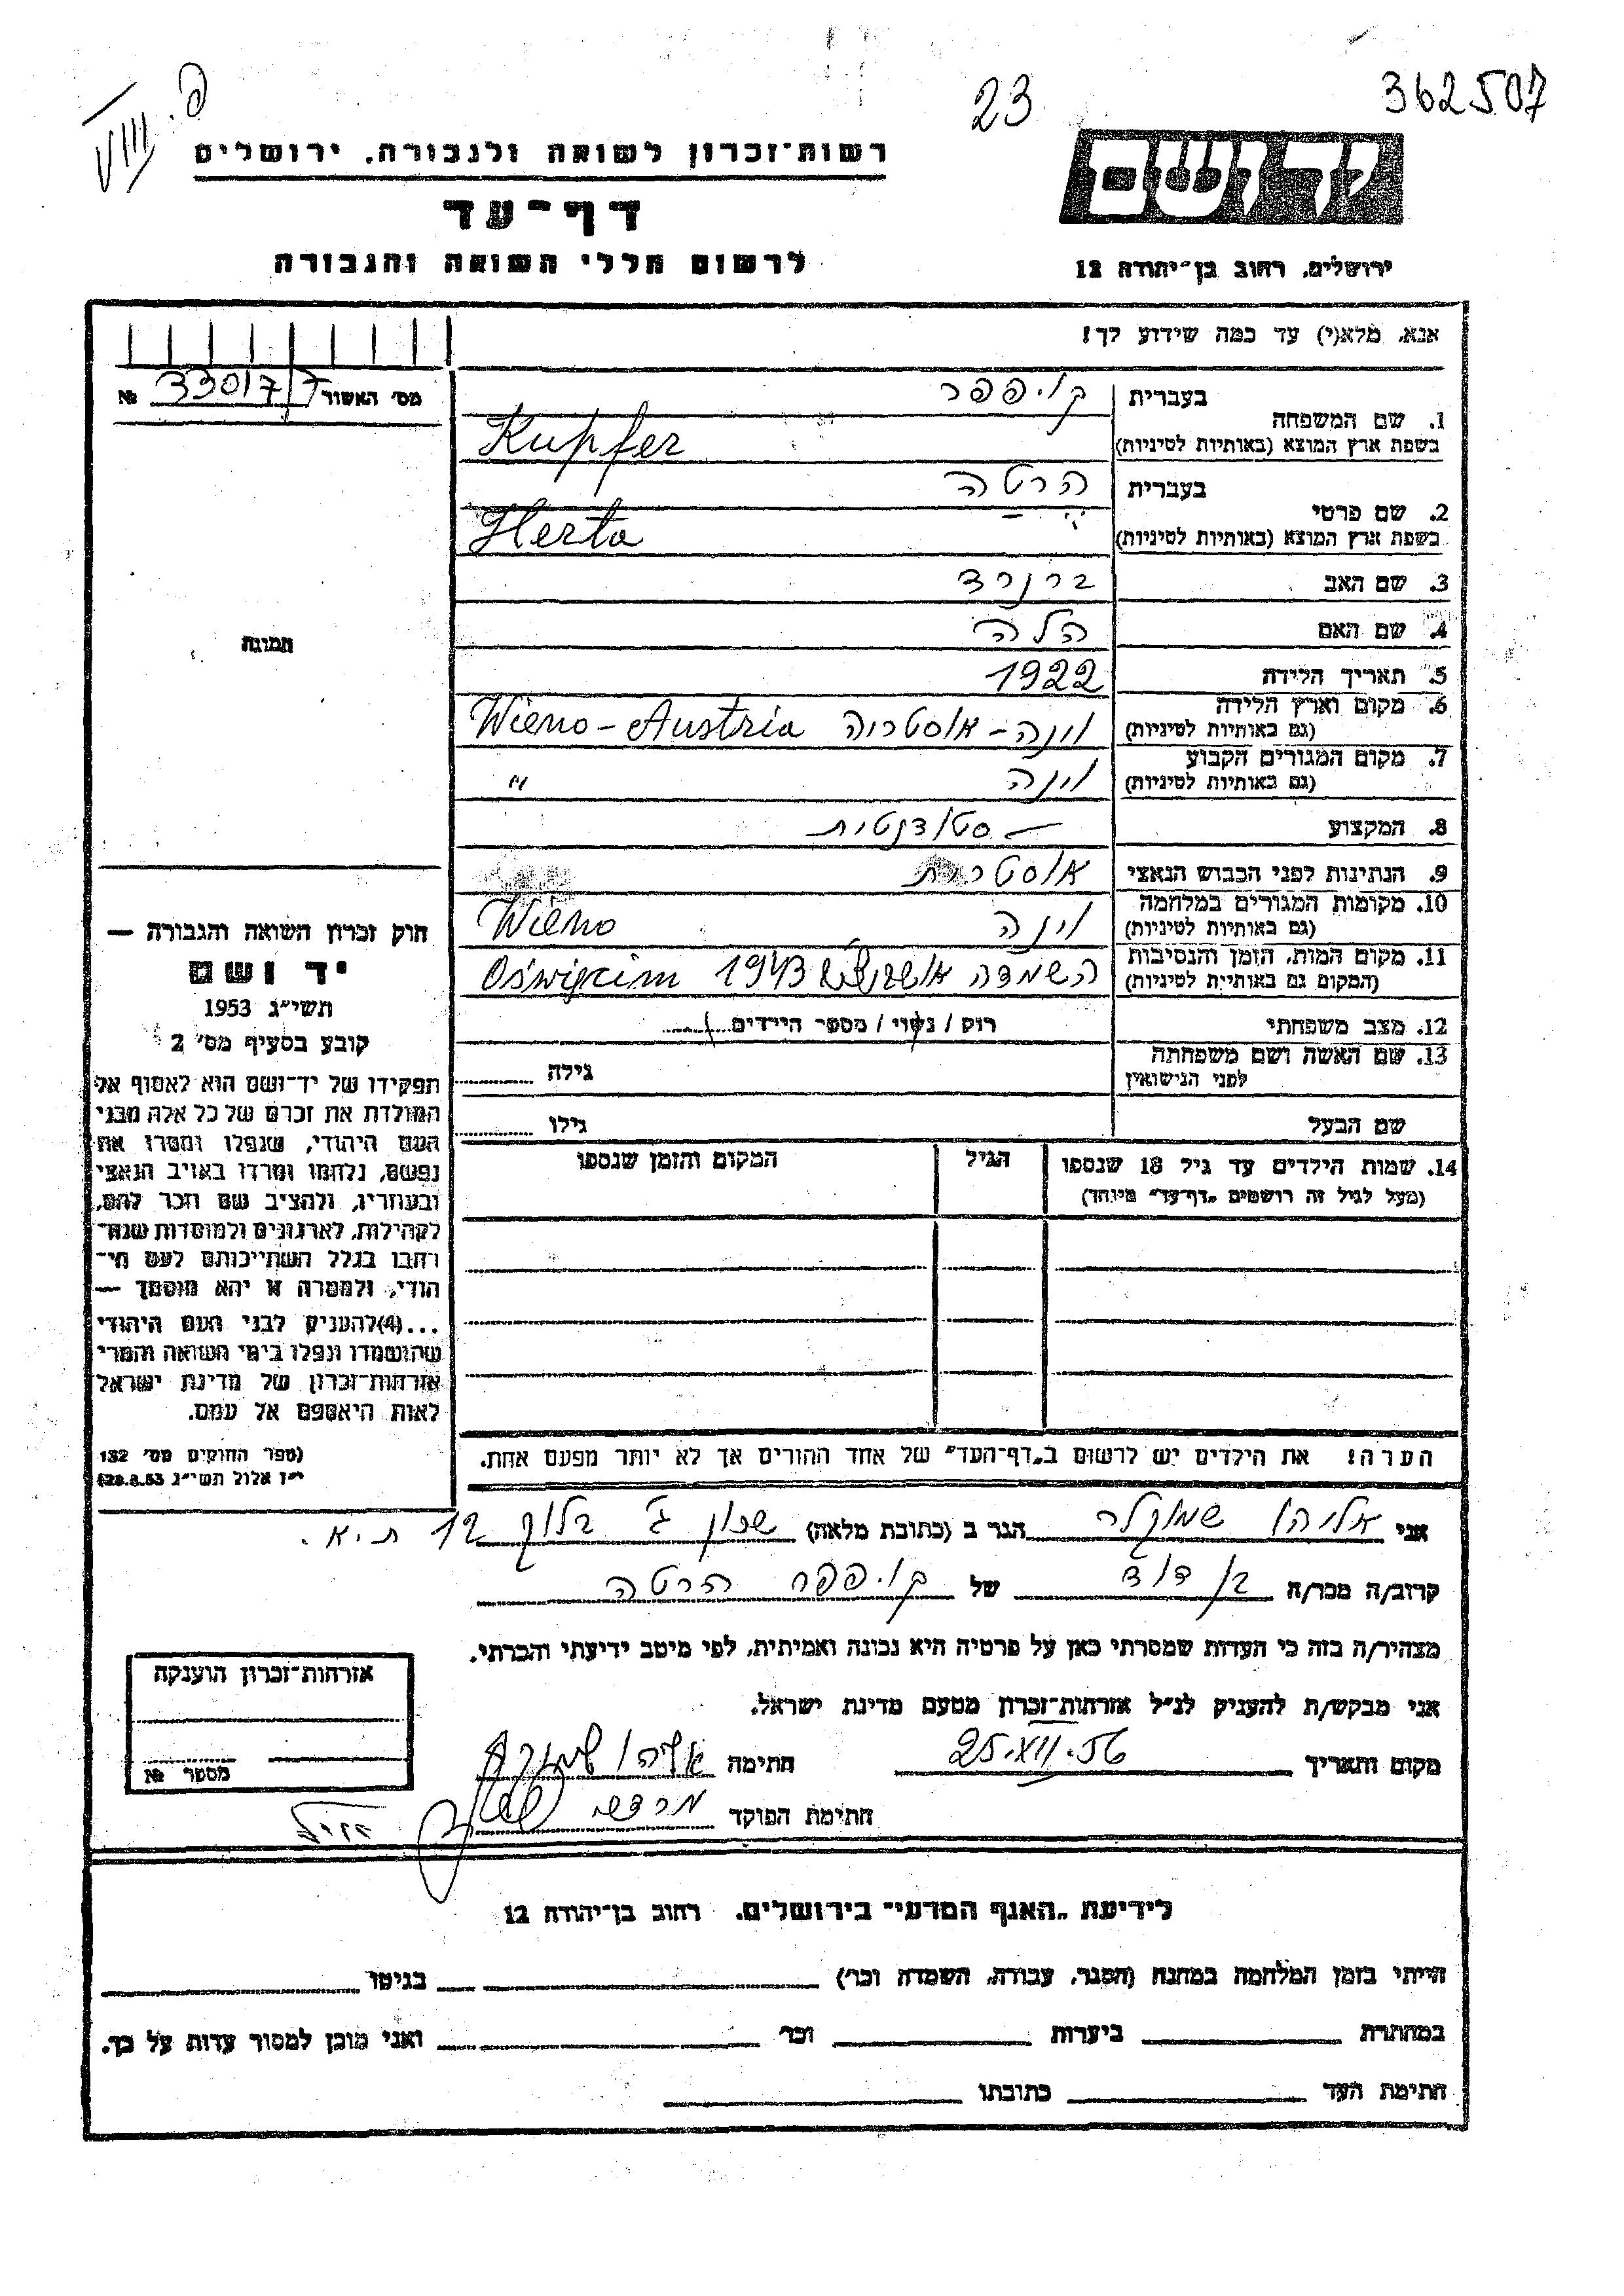 362507
23
פ. VIII
רשות־זכרון לשואה ולגבורה, ירושלים
ידושם
דף־עד
לרשום חללי השואה והגבורה
ירושלים, רחוב בן־יהודה 12
אנא, מלא(י) עד כמה שידוע לך!
מס' האשור 33017/7 №
1. שם המשפחה
בעברית קופפר
בשפת ארץ המוצא (באותיות לטיניות) Kupfer
2. שם פרטי
בעברית הרטה
בשפת ארץ המוצא (באותיות לטיניות) Herta
3. שם האב ברנרד
4. שם האם הלה
5. תאריך הלידה 1922
6. מקום וארץ הלידה (גם באותיות לטיניות) וינה - אוסטריה Wieno - Austria
7. מקום המגורים הקבוע (גם באותיות לטיניות) וינה "
8. המקצוע סטודנטית
9. הנתינות לפני הכבוש הנאצי אוסטרית
10. מקומות המגורים במלחמה (גם באותיות לטיניות) וינה Wieno
11. מקום המות, הזמן והנסיבות (המקום גם באותיות לטיניות) השמדה אושוויץ 1943 Oświęcim
12. מצב משפחתי רווק / נשוי / מספר הילדים
13. שם האשה ושם משפחתה לפני הנישואין גילה
שם הבעל גילו
14. שמות הילדים עד גיל 18 שנספו
(מעל לגיל זה רושמים "דף־עד" מיוחד)
הגיל
המקום והזמן שנספו
הערה! את הילדים יש לרשום ב"דף־העד" של אחד ההורים אך לא יותר מפעם אחת.
תמונה
חוק זכרון השואה והגבורה —
יד ושם
תשי"ג 1953
קובע בסעיף מס' 2
תפקידו של יד־ושם הוא לאסוף אל
המולדת את זכרם של כל אלה מבני
העם היהודי, שנפלו ומסרו את
נפשם, נלחמו ומרדו באויב הנאצי
ובעוזריו, ולהציב שם וזכר להם,
לקהילות, לארגונים ולמוסדות שנח־
רבו בגלל השתייכותם לעם הי־
הודי, ולמטרה זו יהא מוסמך —
...(4)להעניק לבני העם היהודי
שהושמדו ונפלו בימי השואה והמרי
אזרחות־זכרון של מדינת ישראל
לאות היאספם אל עמם.
(ספר החוקים מס' 132
י"ז אלול תשי"ג 28.8.53)
אני אליהו שמוקלר הגר ב (כתובת מלאה) שכון ג' בלוק 12 ת.א.
קרוב/ה מכר/ה בן דוד של קופפר הרטה
מצהיר/ה בזה כי העדות שמסרתי כאן על פרטיה היא נכונה ואמיתית, לפי מיטב ידיעתי והכרתי.
אני מבקש/ת להעניק לנ"ל אזרחות־זכרון מטעם מדינת ישראל.
מקום ותאריך 25.XII.56 חתימה
חתימת הפוקד
אזרחות־זכרון הוענקה
מספר №
לידיעת "האגף המדעי" בירושלים, רחוב בן־יהודה 12
הייתי בזמן המלחמה במחנה (הסגר, עבודה, השמדה וכר') בגיטו
במחתרת ביערות וכר' ואני מוכן למסור עדות על כך.
חתימת העד כתובתו